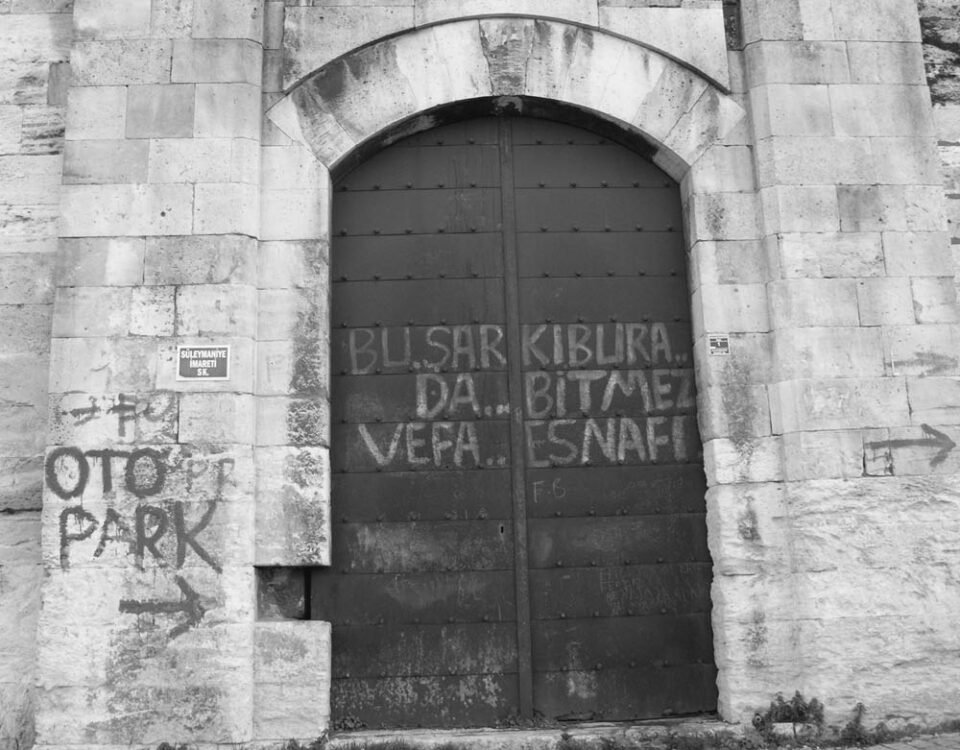 SÜLEYMANİYE
İMARETİ
SK.
BU.ŞAR KIBURA..
DA... BİTMEZ
VEFA.. ESNAFI
F.B
OTO
PARK